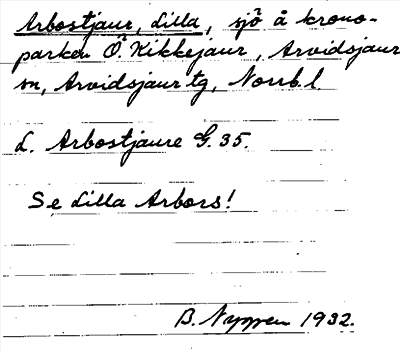 Arbostjaur, Lilla, sjö å krono-
parken Ö. Kikkejaur, Arvidsjaur
sn, Arvidsjaur tg, Norrb. l.
L. Arbostjaure G. 35.
Se Lilla Arbors!
B. Nyppen 1932.